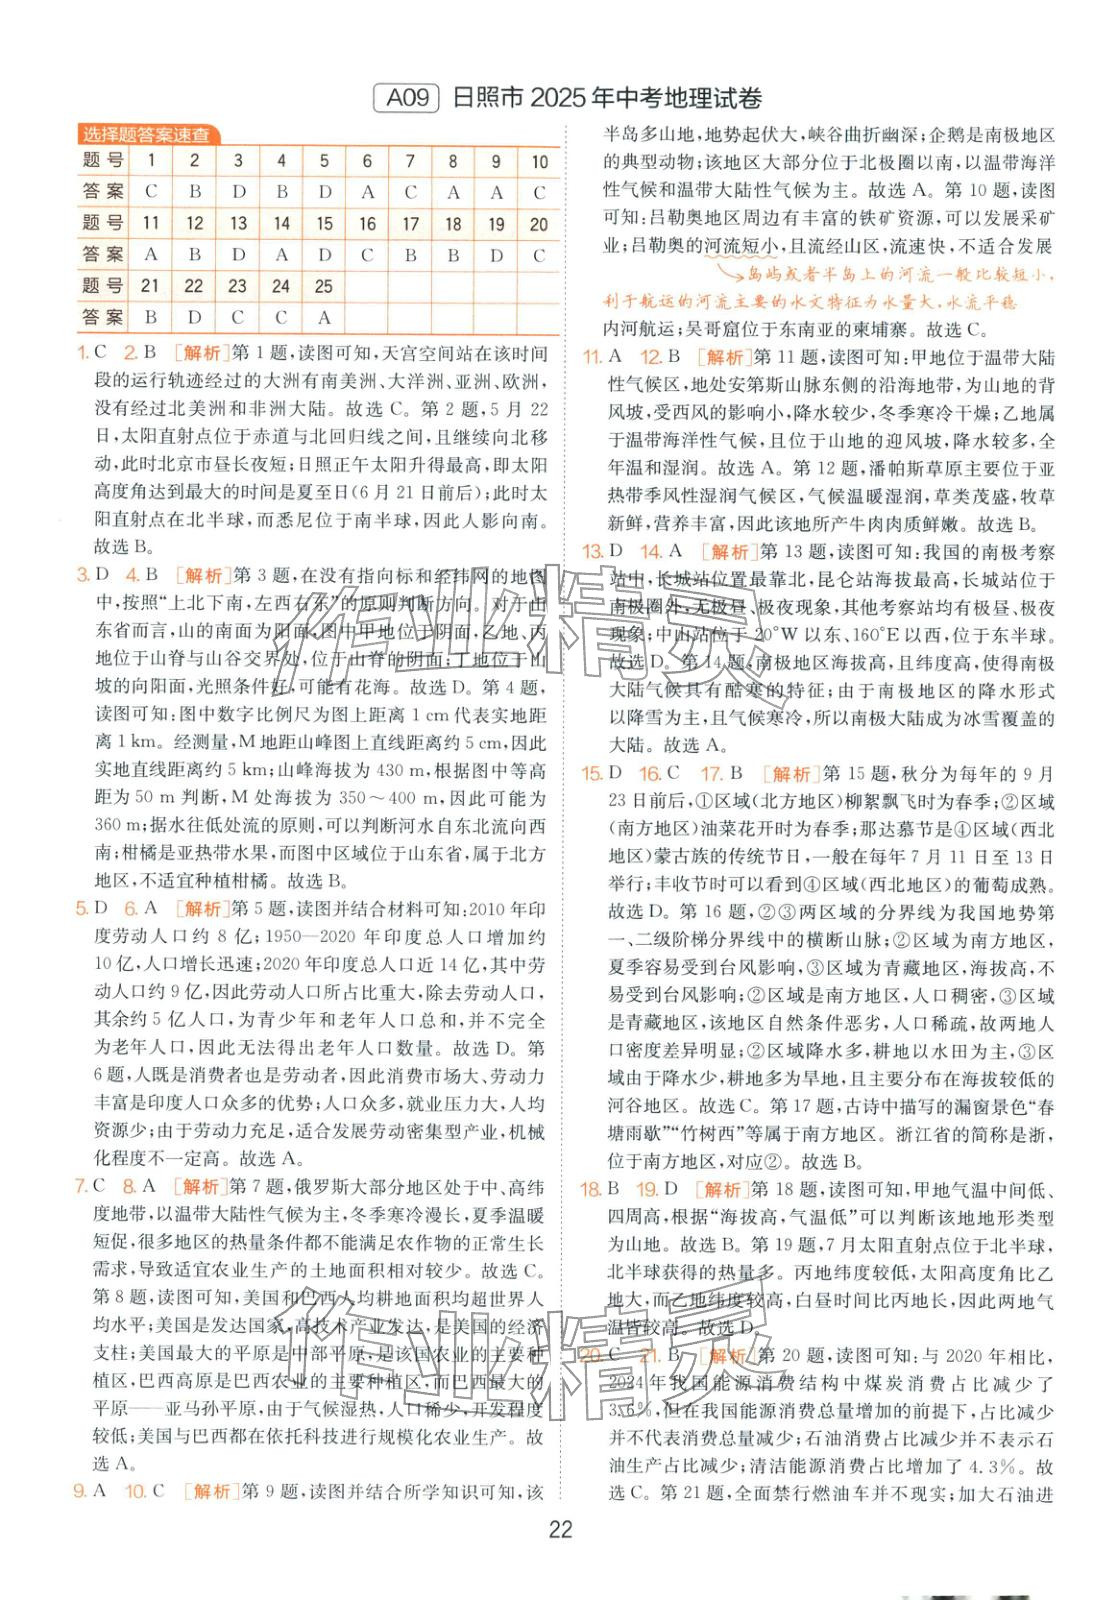 A09 日照市 2025 年中考地理试卷
选择题答案速查
题 号 1 2 3 4 5 6 7 8 9 10
答 案 C B D B D A C A A C
题 号 11 12 13 14 15 16 17 18 19 20
答 案 A B D A D C B B D C
题 号 21 22 23 24 25
答 案 B D C C A
1. C 2. B [解析]第 1 题,读图可知,天宫空间站在该时间
段的运行轨迹经过的大洲有南美洲、大洋洲、亚洲、欧洲,
没有经过北美洲和非洲大陆。故选 C。第 2 题,5 月 22
日,太阳直射点位于赤道与北回归线之间,且继续向北移
动,此时北京市昼长夜短;日照正午太阳升得最高,即太阳
高度角达到最大的时间是夏至日(6 月 21 日前后);此时太
阳直射点在北半球,而悉尼位于南半球,因此人影向南。
故选 B。
3. D 4. B [解析]第 3 题,在没有指向标和经纬网的地图
中,按照“上北下南,左西右东”的原则判断方向。对于山
东省而言,山的南面为阳面,图中甲地位于阴面,乙地、丙
地位于山脊与山谷交界处,位于山脊的阴面;丁地位于山
坡的向阳面,光照条件好,可能有花海。故选 D。第 4 题,
读图可知:图中数字比例尺为图上 1 cm 代表实地距
离 1 km。经测量,M 地距山峰图上直线距离约 5 cm,因此
实地直线距离约 5 km;山峰海拔为 430 m,根据图中等高
距为 50 m 判断,M 处海拔为 350～400 m,因此可能为
360 m;据水往低处流的原则,可以判断河水自东北流向西
南;柑橘是亚热带水果,而图中区域位于山东省,属于北方
地区,不适宜种植柑橘。故选 B。
5. D 6. A [解析]第 5 题,读图并结合材料可知:2010 年印
度劳动人口约 8 亿;1950—2020 年印度总人口增加约
10 亿,人口增长迅速;2020 年印度总人口近 14 亿,其中劳
动人口约 9 亿,因此劳动人口所占比重大,除去劳动人口,
其余约 5 亿人口,为青少年和老年人口总和,并不完全
为老年人口,因此无法得出老年人口数量。故选 D。第
6 题,人既是消费者也是劳动者,因此消费市场大、劳动力
丰富是印度人口众多的优势;人口众多,就业压力大,人均
资源少;由于劳动力充足,适合发展劳动密集型产业,机械
化程度不一定高。故选 A。
7. C 8. A [解析]第 7 题,俄罗斯大部分地区处于中、高纬
度地带,以温带大陆性气候为主,冬季寒冷漫长,夏季温暖
短促,很多地区的热量条件都不能满足农作物的正常生长
需求,导致适宜农业生产的土地面积相对较少。故选 C。
第 8 题,读图可知,美国和巴西人均耕地面积均超世界人
均水平;美国是发达国家,高技术产业发达,是美国的经济
支柱;美国最大的平原是中部平原,是该国农业的主要种
植区,巴西高原是巴西农业的主要种植区,而巴西最大的
平原——亚马孙平原,由于气候湿热,人口稀少,开发程度
较低;美国与巴西都在依托科技进行规模化农业生产。故
选 A。
9. A 10. C [解析]第 9 题,读图并结合所学知识可知,该
半岛多山地,地势起伏大,峡谷曲折幽深;企鹅是南极地区
的典型动物;该地区大部分位于北极圈以南,以温带海洋
性气候和温带大陆性气候为主。故选 A。第 10 题,读图
可知:吕勒奥地区周边有丰富的铁矿资源,可以发展采矿
业;吕勒奥的河流短小,且流经山区,流速快,不适合发展
岛屿或者半岛上的河流一般比较短小,
利于航运的河流主要的水文特征为水量大,水流平稳
内河航运;吴哥窟位于东南亚的柬埔寨。故选 C。
11. A 12. B [解析]第 11 题,读图可知:甲地位于温带大陆
性气候区,地处安第斯山脉东侧的沿海地带,为山地的背
风坡,受西风的影响小,降水较少,冬季寒冷干燥;乙地属
于温带海洋性气候,且位于山地的迎风坡,降水较多,全
年温和湿润。故选 A。第 12 题,潘帕斯草原主要位于亚
热带季风性湿润气候区,气候温暖湿润,草类茂盛,牧草
新鲜,营养丰富,因此该地所产牛肉肉质鲜嫩。故选 B。
13. D 14. A [解析]第 13 题,读图可知:我国的南极考察
站中,长城站位置最靠北,昆仑站海拔最高,长城站位于
南极圈外,无极昼、极夜现象,其他考察站均有极昼、极夜
现象;中山站位于 20°W 以东、160°E 以西,位于东半球。
故选 D。第 14 题,南极地区海拔高,且纬度高,使得南极
大陆气候具有酷寒的特征;由于南极地区的降水形式
以降雪为主,且气候寒冷,所以南极大陆成为冰雪覆盖的
大陆。故选 A。
15. D 16. C 17. B [解析]第 15 题,秋分为每年的 9 月
23 日前后,①区域(北方地区)柳絮飘飞时为春季;②区域
(南方地区)油菜花开时为春季;那达慕节是④区域(西北
地区)蒙古族的传统节日,一般在每年 7 月 11 日至 13 日
举行;丰收节时可以看到④区域(西北地区)的葡萄成熟。
故选 D。第 16 题,②③两区域的分界线为我国地势第
一、二级阶梯分界线中的横断山脉;②区域为南方地区,
夏季容易受到台风影响,③区域为青藏地区,海拔高,不
易受到台风影响;②区域是南方地区,人口稠密,③区域
是青藏地区,该地区自然条件恶劣,人口稀疏,故两地人
口密度差异明显;②区域降水多,耕地以水田为主,③区
域由于降水少,耕地多为旱地,且主要分布在海拔较低的
河谷地区。故选 C。第 17 题,古诗中描写的漏窗景色“春
塘雨歇”“竹树西”等属于南方地区。浙江省的简称是浙,
位于南方地区,对应②。故选 B。
18. B 19. D [解析]第 18 题,读图可知,甲地气温中间低、
四周高,根据“海拔高,气温低”可以判断该地地形类型
为山地。故选 B。第 19 题,7 月太阳直射点位于北半球,
北半球获得的热量多。丙地纬度较低,太阳高度角比乙
地大,而乙地纬度较高,白昼时间比丙地长,因此两地气
温皆较高。故选 D。
20. C 21. B [解析]第 20 题,读图可知:与 2020 年相比,
2024 年我国能源消费结构中煤炭消费占比减少了
3.6%,但在我国能源消费总量增加的前提下,占比减少
并不代表消费总量减少;石油消费占比减少并不表示石
油生产占比减少;清洁能源消费占比增加了 4.3%。故
选 C。第 21 题,全面禁行燃油车并不现实;加大石油进
22
作业精灵
作业精灵